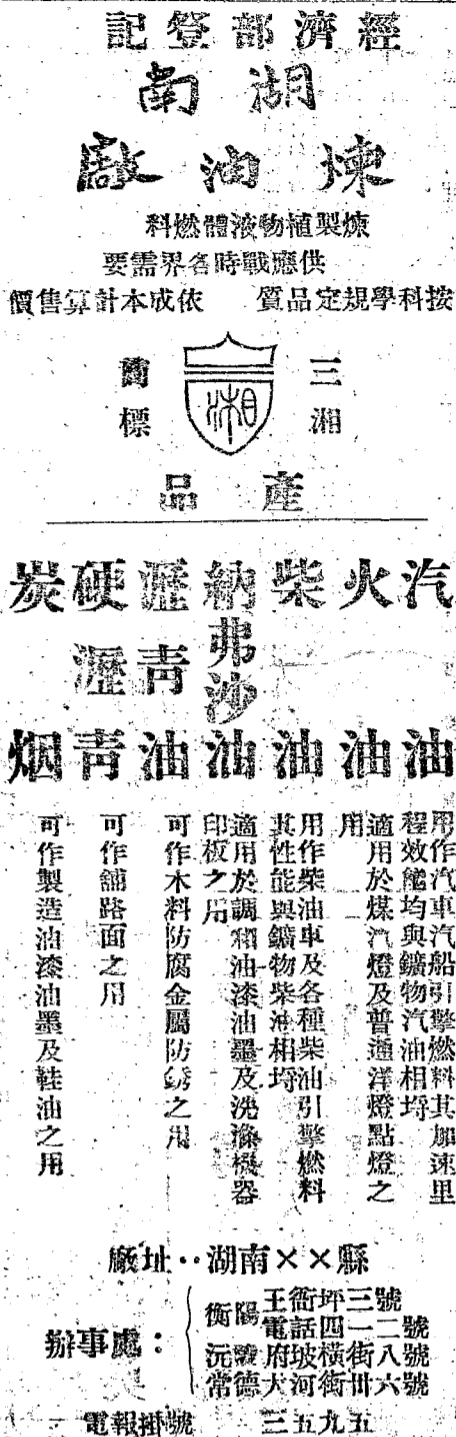 經濟部登記
湖南
煉油廠
煉製植物液體燃料
供應戰時各界需要
按科學規定品質　依成本計算售價
三湘
商標
湘
產品
汽油
用作汽車汽船引擎燃料其加速里
程效能均與鑛物汽油相埒
火油
適用於煤汽燈及普通洋燈點燈之
用
柴油
用作柴油車及各種柴油引擎燃料
其性能與鑛物柴油相埒
納弗沙油
適用於調和油漆油墨及洗滌機器
印板之用
瀝青油
可作木料防腐金屬防銹之用
硬瀝青
可作舖路面之用
炭烟
可作製造油漆油墨及鞋油之用
廠址：湖南××縣
辦事處：
衡陽　王衙坪三號
電話四一二號
沅陵　府坡橫街八號
常德　大河街卅六號
電報掛號　三五九五